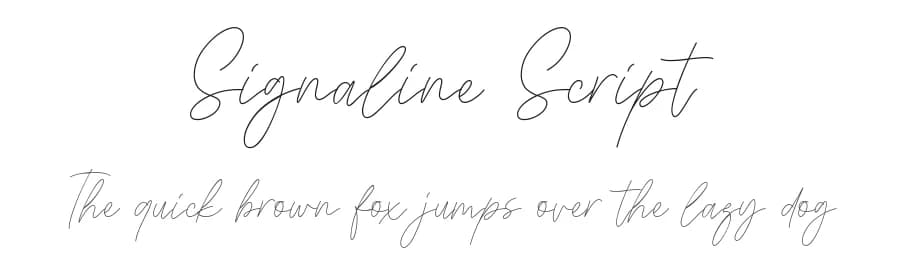 Signaline Script
The quick brown fox jumps over the lazy dog